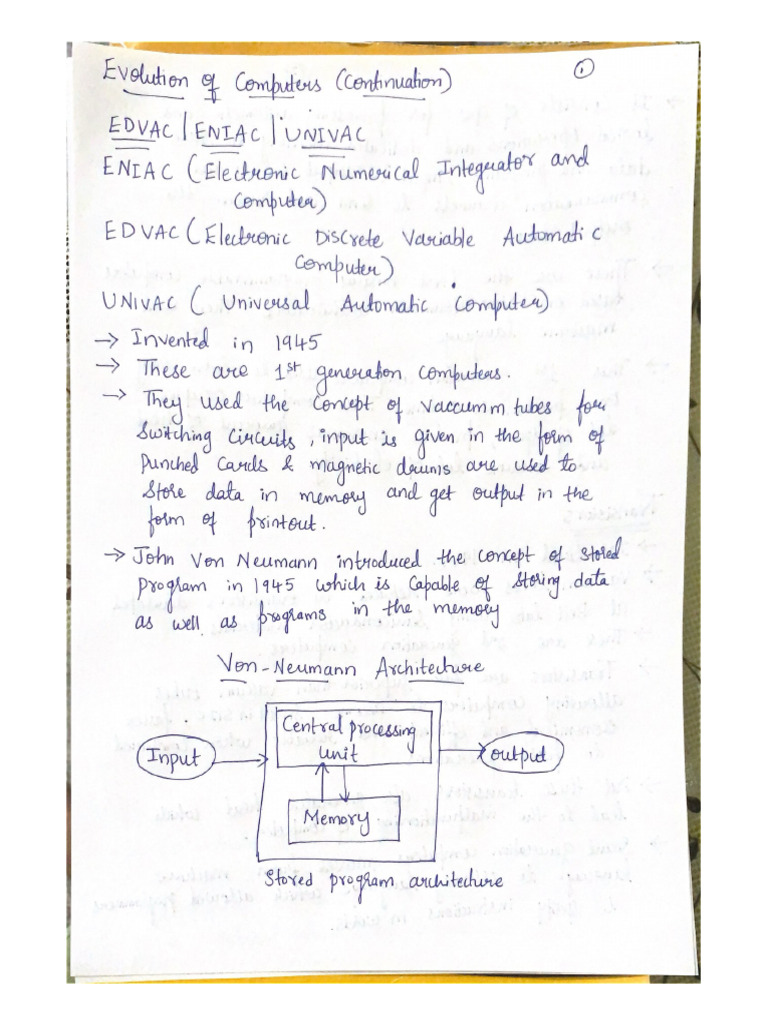 Evolution of Computers (Continuation) 1
EDVAC | ENIAC | UNIVAC
ENIAC (Electronic Numerical Integrator and
Computer)
EDVAC (Electronic Discrete Variable Automatic
Computer)
UNIVAC (Universal Automatic Computer)
→ Invented in 1945
→ These are 1st generation computers.
→ They used the concept of vaccumm tubes for
switching circuits, input is given in the form of
punched cards & magnetic drums are used to
store data in memory and get output in the
form of printout.
→ John Von Neumann introduced the concept of stored
program in 1945 which is capable of storing data
as well as programs in the memory
Von-Neumann Architecture
Central processing
unit
Input
output
Memory
Stored program architecture